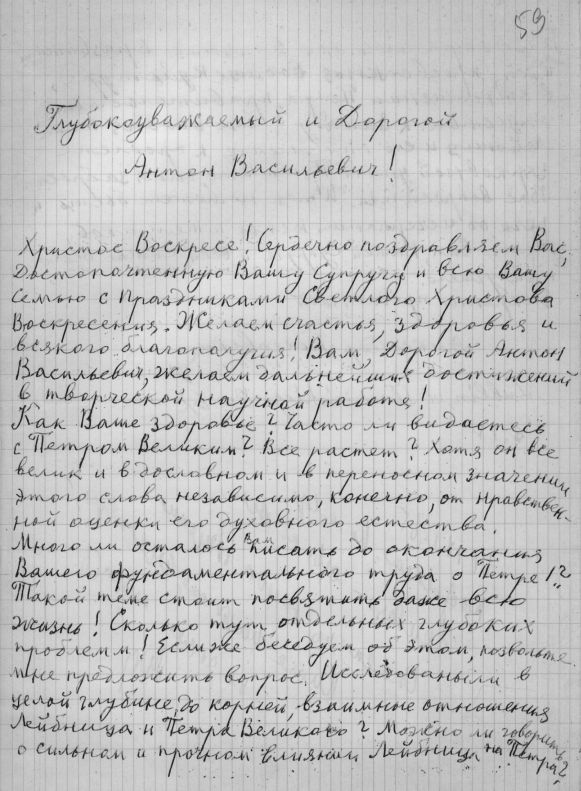 59
Глубокоуважаемый и Дорогой
Антон Васильевич!
Христос Воскресе! Сердечно поздравляем Вас,
Достопочтенную Вашу Супругу и всю Вашу
семью с Праздниками Светлого Христова
Воскресения. Желаем счастья, здоровья и
всякого благополучия! Вам, Дорогой Антон
Васильевич, желаем дальнейших достижений
в творческой научной работе!
Как Ваше здоровье? Часто ли видаетесь
с Петром Великим? Все растет? Хотя он все
велик и в дословном и в переносном значении
этого слова независимо, конечно, от нравствен-
ной оценки его духовного естества.
Много ли осталось Вам писать до окончания
Вашего фундаментального труда о Петре!?
Такой теме стоит посвятить даже всю
жизнь! Сколько тут отдельных глубоких
проблемм! Если же беседуем об этом, позвольте
мне предложить вопрос. Исследованы ли в
целой глубине, до корней, взаимные отношения
Лейбница и Петра Великого? Можно ли говорить
о сильном и прочном влиянии Лейбница на Петра?